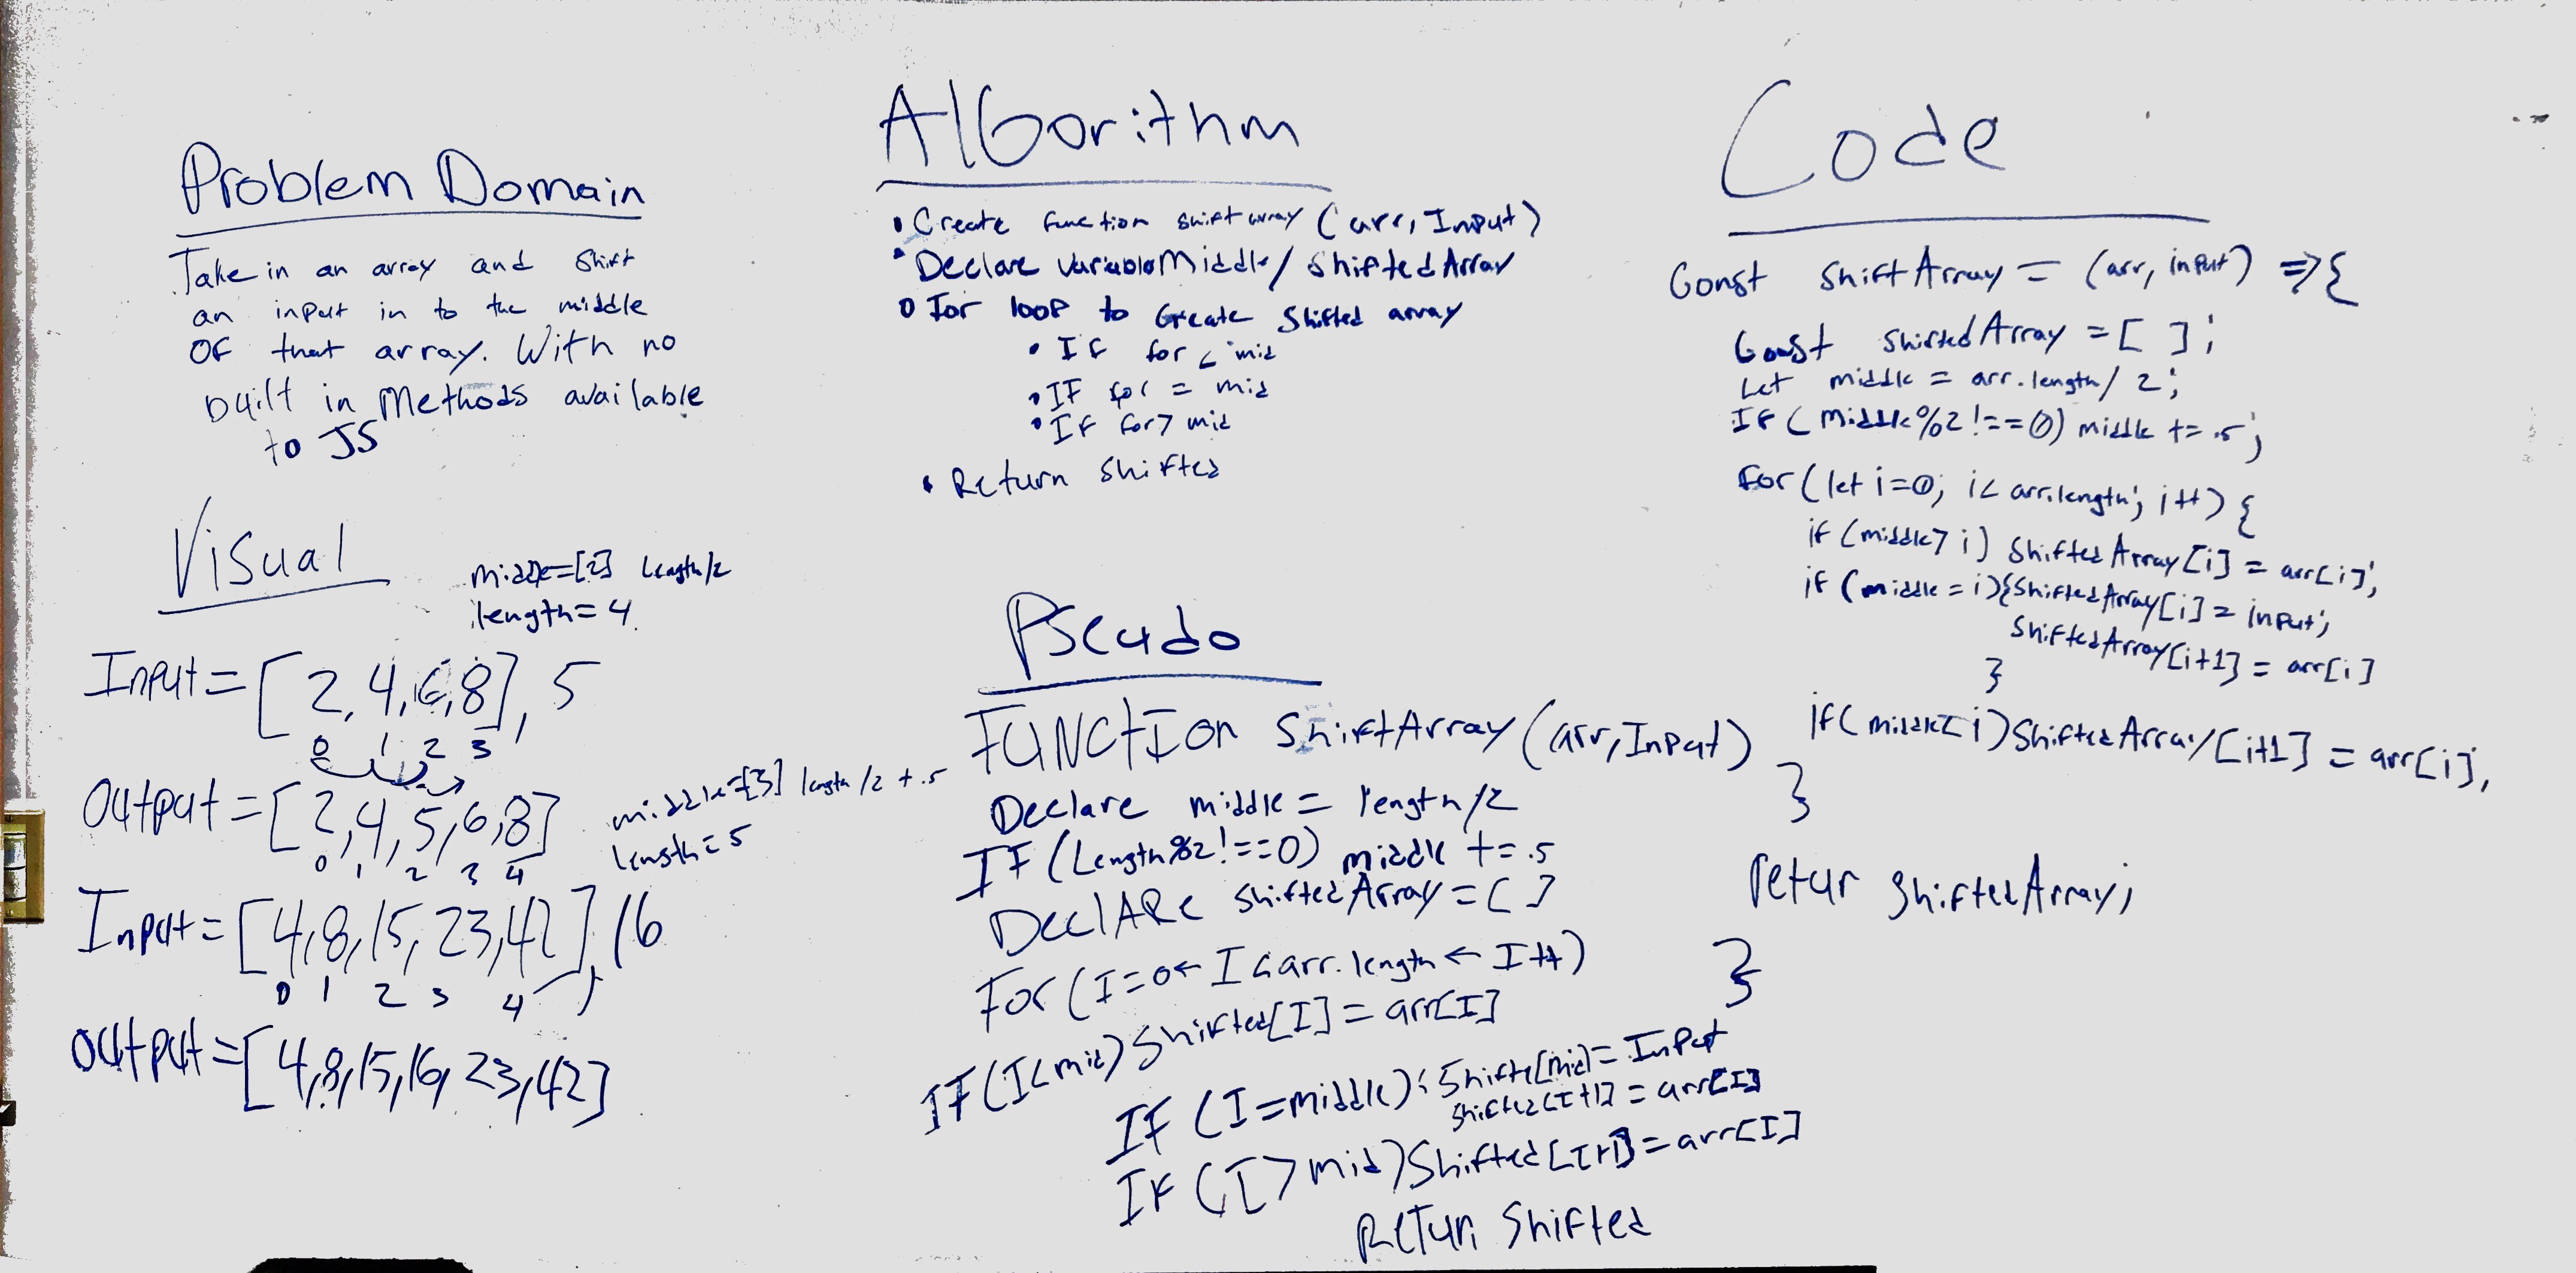 Problem Domain
Take in an array and shift
an input in to the middle
OF that array. With no
built in Methods available
to JS
Visual
middle=[2] length/2
length=4
Input=[2,4,6,8],5
0 1 2 3
Output=[2,4,5,6,8]
0 1 2 3 4
middle=[3] length/2 +.5
length=5
Input=[4,8,15,23,42],16
0 1 2 3 4
Output=[4,8,15,16,23,42]
AlGorithm
• Create function shiftarray (arr, Input)
• Declare variable Middle/ ShiftedArray
• For loop to Create Shifted array
• IF for < mid
• IF for = mid
• IF for > mid
• Return Shifted
Pseudo
FUNCtIon ShiftArray (arr, Input)
Declare middle = length/2
IF (Length%2!==0) middle += .5
DeclARe shiftedArray = []
For (I=0← I<arr.length ← I++)
IF (I<mid) Shifted[I] = arr[I]
IF (I=middle){ Shifte[mid]= Input
Shifted[I+1] = arr[I]
IF (I>mid) Shifted[I+1]=arr[I]
ReTurn Shifted
Code
Const ShiftArray = (arr, input) => {
Const ShiftedArray = [ ];
Let middle = arr.length/ 2;
IF (Middle%2!==0) middle += .5;
For (let i=0; i< arr.length; i++) {
if (middle> i) ShiftedArray[i] = arr[i];
if (middle = i){ShiftedArray[i] = input;
ShiftedArray[i+1] = arr[i]
}
if(middle< i) ShiftedArray[i+1] = arr[i];
}
retur ShiftedArray;
}